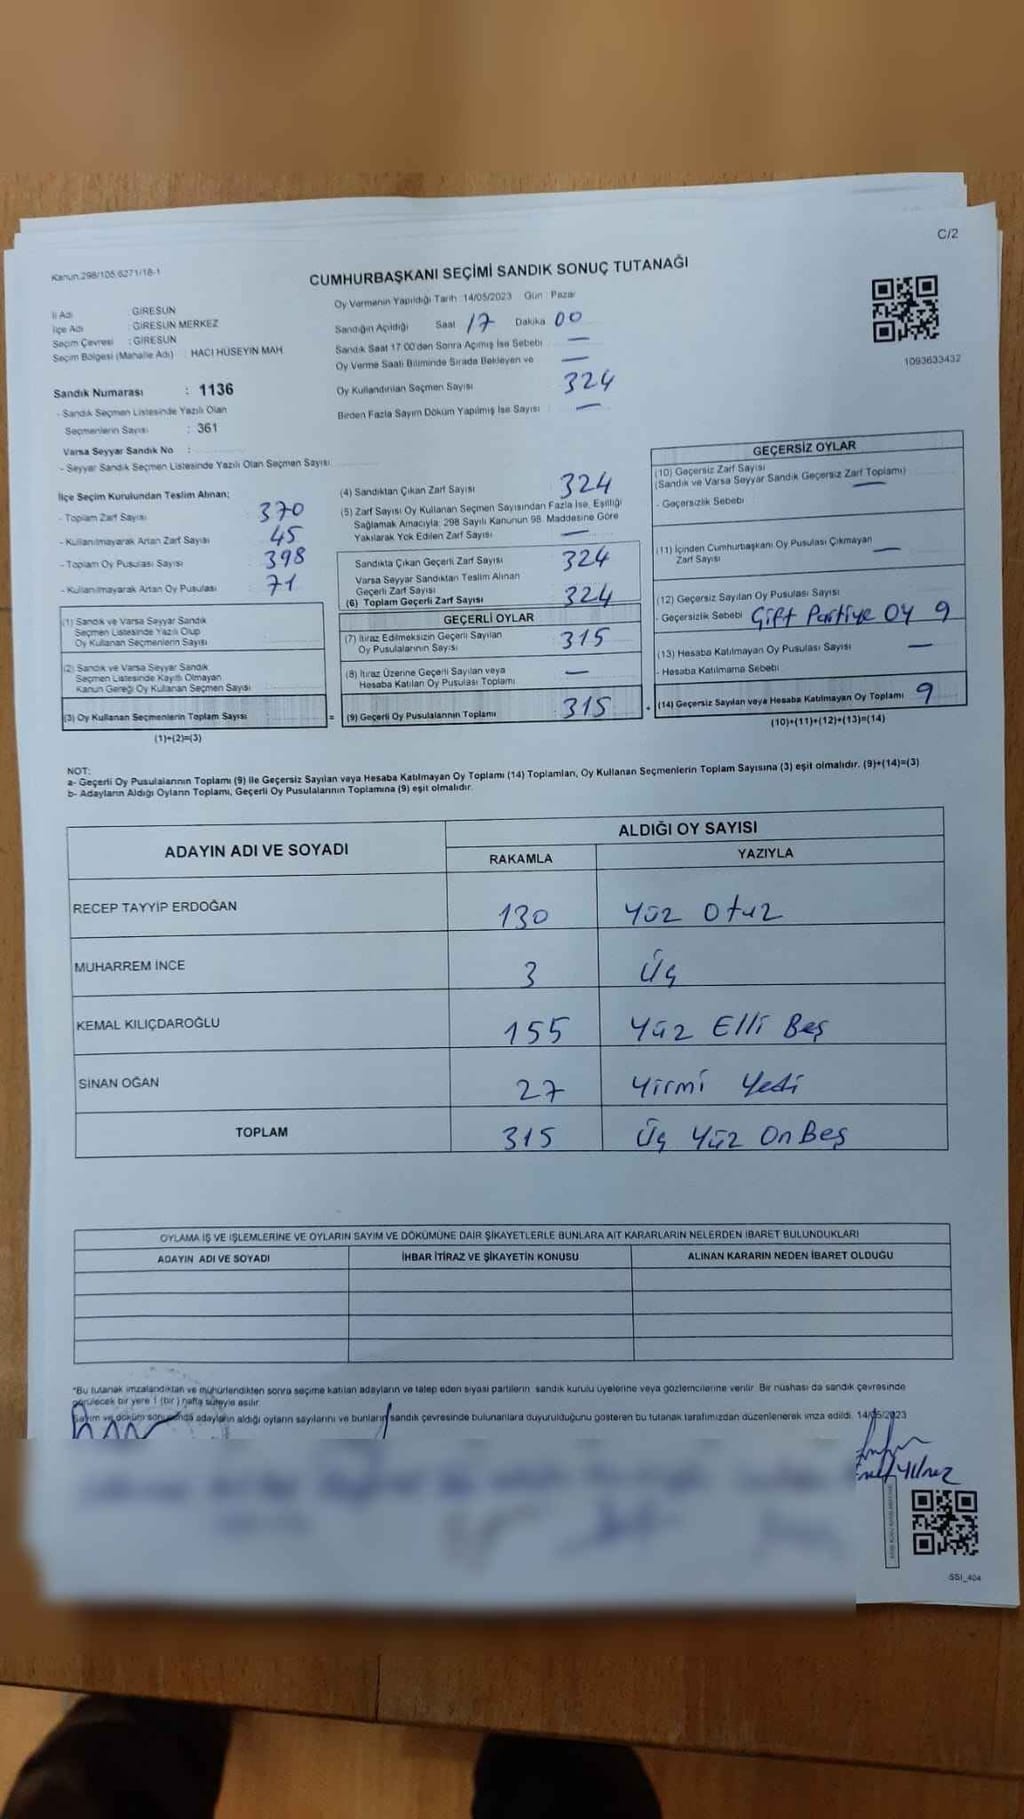 C/2
Kanun.298/105,6271/18-1
CUMHURBAŞKANI SEÇİMİ SANDIK SONUÇ TUTANAĞI
Oy Vermenin Yapıldığı Tarih : 14/05/2023 Gün : Pazar
İl Adı : GİRESUN
İlçe Adı : GİRESUN MERKEZ
Seçim Çevresi : GİRESUN
Seçim Bölgesi (Mahalle Adı) : HACI HÜSEYİN MAH
Sandığın Açıldığı Saat 17 Dakika 00
Sandık Saat 17:00'den Sonra Açılmış İse Sebebi : —
Oy Verme Saati Bitiminde Sırada Bekleyen ve —
Oy Kullandırılan Seçmen Sayısı 324
Birden Fazla Sayım Döküm Yapılmış İse Sayısı : —
1093633432
Sandık Numarası : 1136
- Sandık Seçmen Listesinde Yazılı Olan
Seçmenlerin Sayısı : 361
Varsa Seyyar Sandık No :
- Seyyar Sandık Seçmen Listesinde Yazılı Olan Seçmen Sayısı
İlçe Seçim Kurulundan Teslim Alınan;
- Toplam Zarf Sayısı : 370
- Kullanılmayarak Artan Zarf Sayısı : 45
- Toplam Oy Pusulası Sayısı : 398
- Kullanılmayarak Artan Oy Pusulası : 71
(1) Sandık ve Varsa Seyyar Sandık
Seçmen Listesinde Yazılı Olup
Oy Kullanan Seçmenlerin Sayısı
(2) Sandık ve Varsa Seyyar Sandık
Seçmen Listesinde Kayıtlı Olmayan
Kanun Gereği Oy Kullanan Seçmen Sayısı
(3) Oy Kullanan Seçmenlerin Toplam Sayısı =
(1)+(2)=(3)
(4) Sandıktan Çıkan Zarf Sayısı 324
(5) Zarf Sayısı Oy Kullanan Seçmen Sayısından Fazla İse, Eşitliği
Sağlamak Amacıyla, 298 Sayılı Kanunun 98. Maddesine Göre
Yakılarak Yok Edilen Zarf Sayısı —
Sandıkta Çıkan Geçerli Zarf Sayısı 324
Varsa Seyyar Sandıktan Teslim Alınan
Geçerli Zarf Sayısı
(6) Toplam Geçerli Zarf Sayısı 324
GEÇERLİ OYLAR
(7) İtiraz Edilmeksizin Geçerli Sayılan
Oy Pusulalarının Sayısı 315
(8) İtiraz Üzerine Geçerli Sayılan veya
Hesaba Katılan Oy Pusulası Toplamı —
(9) Geçerli Oy Pusulalarının Toplamı 315 +
GEÇERSİZ OYLAR
(10) Geçersiz Zarf Sayısı
(Sandık ve Varsa Seyyar Sandık Geçersiz Zarf Toplamı) —
- Geçersizlik Sebebi
(11) İçinden Cumhurbaşkanı Oy Pusulası Çıkmayan
Zarf Sayısı —
(12) Geçersiz Sayılan Oy Pusulası Sayısı
- Geçersizlik Sebebi Çift Partiye OY 9
(13) Hesaba Katılmayan Oy Pusulası Sayısı —
- Hesaba Katılmama Sebebi
(14) Geçersiz Sayılan veya Hesaba Katılmayan Oy Toplamı 9
(10)+(11)+(12)+(13)=(14)
NOT:
a- Geçerli Oy Pusulalarının Toplamı (9) ile Geçersiz Sayılan veya Hesaba Katılmayan Oy Toplamı (14) Toplamları, Oy Kullanan Seçmenlerin Toplam Sayısına (3) eşit olmalıdır. (9)+(14)=(3)
b- Adayların Aldığı Oyların Toplamı, Geçerli Oy Pusulalarının Toplamına (9) eşit olmalıdır.
ADAYIN ADI VE SOYADI ALDIĞI OY SAYISI
RAKAMLA YAZIYLA
RECEP TAYYİP ERDOĞAN 130 Yüz Otuz
MUHARREM İNCE 3 Üç
KEMAL KILIÇDAROĞLU 155 Yüz Elli Beş
SİNAN OĞAN 27 Yirmi Yedi
TOPLAM 315 Üç Yüz On Beş
OYLAMA İŞ VE İŞLEMLERİNE VE OYLARIN SAYIM VE DÖKÜMÜNE DAİR ŞİKAYETLERLE BUNLARA AİT KARARLARIN NELERDEN İBARET BULUNDUKLARI
ADAYIN ADI VE SOYADI İHBAR İTİRAZ VE ŞİKAYETİN KONUSU ALINAN KARARIN NEDEN İBARET OLDUĞU
*Bu tutanak imzalandıktan ve mühürlendikten sonra seçime katılan adayların ve talep eden siyasi partilerin sandık kurulu üyelerine veya gözlemcilerine verilir. Bir nüshası da sandık çevresinde
görülecek bir yere 1 (bir) hafta süreyle asılır.
Sayım ve döküm sonucunda adayların aldığı oyların sayılarını ve bunların sandık çevresinde bulunanlara duyurulduğunu gösteren bu tutanak tarafımızdan düzenlenerek imza edildi. 14/05/2023
SSI_404